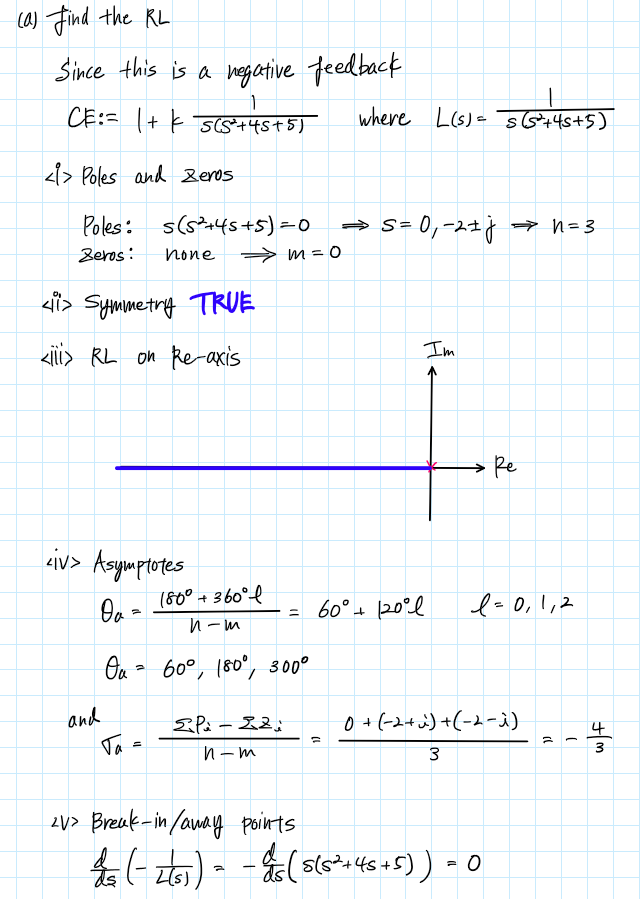 (a) Find the RL
Since this is a negative feedback
CE:= 1 + k 1/(s(s²+4s+5)) where L(s) = 1/(s(s²+4s+5))
<i> Poles and zeros
Poles: s(s²+4s+5)=0 ⟹ s=0, -2±j ⟹ n=3
zeros: none ⟹ m=0
<ii> Symmetry TRUE
<iii> RL on Re-axis
Im
Re
<iv> Asymptotes
θa = (180° + 360°l)/(n-m) = 60° + 120°l l = 0, 1, 2
θa = 60°, 180°, 300°
and
σa = (Σpi - Σzi)/(n-m) = (0 + (-2+i) + (-2-i))/3 = -4/3
<v> Break-in/away points
d/ds(-1/L(s)) = -d/ds(s(s²+4s+5)) = 0